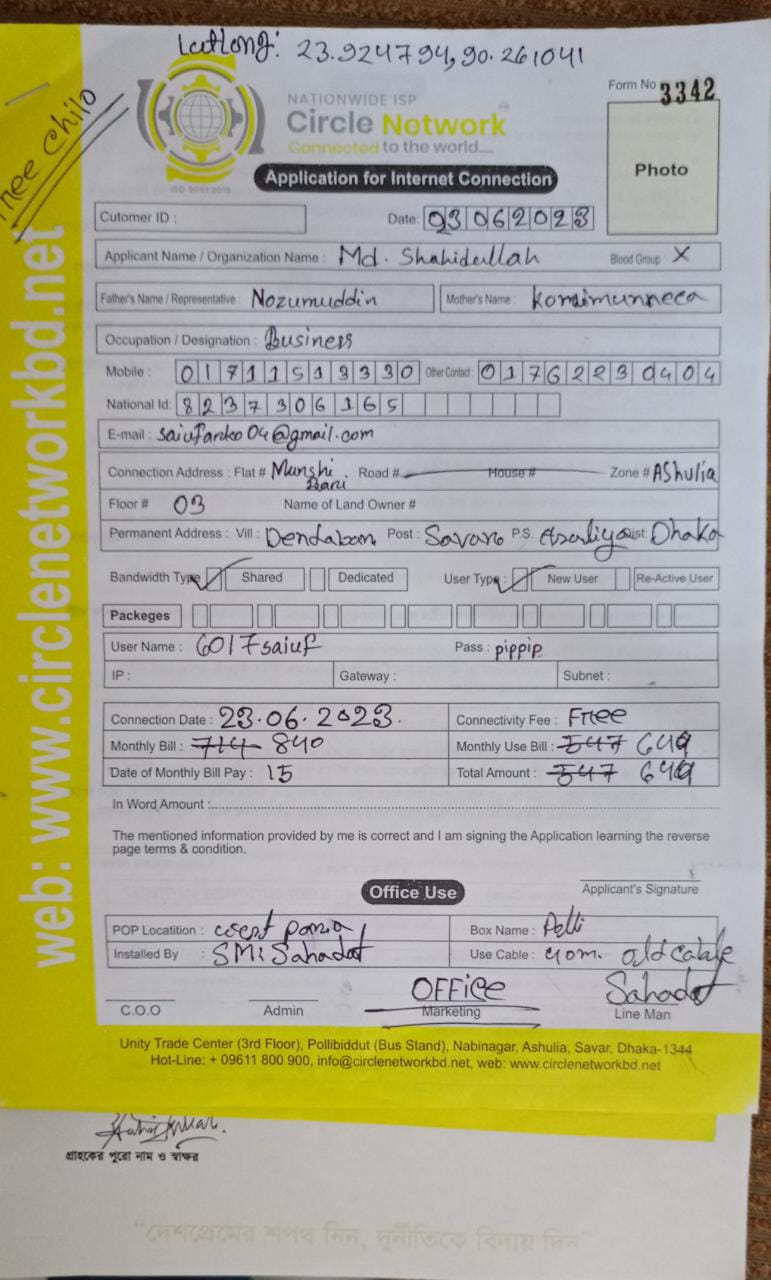 Latlong: 23.924794,90.261041
Free Chilo
NATIONWIDE ISP
Form No 3342
Circle Network
Connected to the world....
ISO 9001:2015
Photo
Application for Internet Connection
Cutomer ID :
Date: 03062023
Applicant Name / Organization Name : Md. Shahidullah Blood Group : X
Father's Name / Representative : Nozumuddin Mother's Name :
Occupation / Designation : Business
Mobile : 01711513330 Other Contact : 01762230404
National Id: 8237306165
E-mail : @gmail.com
Connection Address : Flat # Munshi Bari Road # House # Zone # AShulia
Floor # 03 Name of Land Owner #
Permanent Address : Vill : Dendaban Post : Savaro P.S. Dist: Dhaka
Bandwidth Type : Shared Dedicated User Type : New User Re-Active User
Packeges
User Name : 6017saiuf Pass : pippip
IP : Gateway : Subnet :
Connection Date : 23.06.2023. Connectivity Fee : Free
Monthly Bill : 714 840 Monthly Use Bill : 547 649
Date of Monthly Bill Pay : 15 Total Amount : 547 649
In Word Amount :
The mentioned information provided by me is correct and I am signing the Application learning the reverse
page terms & condition.
Office Use
Applicant's Signature
POP Locatition : Box Name : Polli
Installed By : SM: Sahadat Use Cable : 40m. old cable
OFFice Sahadat
C.O.O Admin Marketing Line Man
Unity Trade Center (3rd Floor), Pollibiddut (Bus Stand), Nabinagar, Ashulia, Savar, Dhaka-1344
Hot-Line: + 09611 800 900, info@circlenetworkbd.net, web: www.circlenetworkbd.net
web: www.circlenetworkbd.net
গ্রাহকের পুরো নাম ও স্বাক্ষর
"দেশপ্রেমের শপথ নিন, দুর্নীতিকে বিদায় দিন"